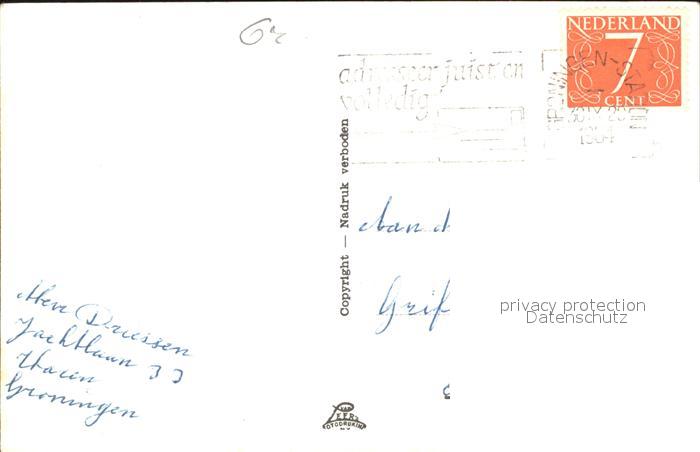 NEDERLAND
7
CENT
adresseer juist en
volledig
GRONINGEN-STA
1964
Copyright — Nadruk verboden
Aan d
Grif
privacy protection
Datenschutz
Mevr Driessen
Jachtlaan 33
Haren
Groningen